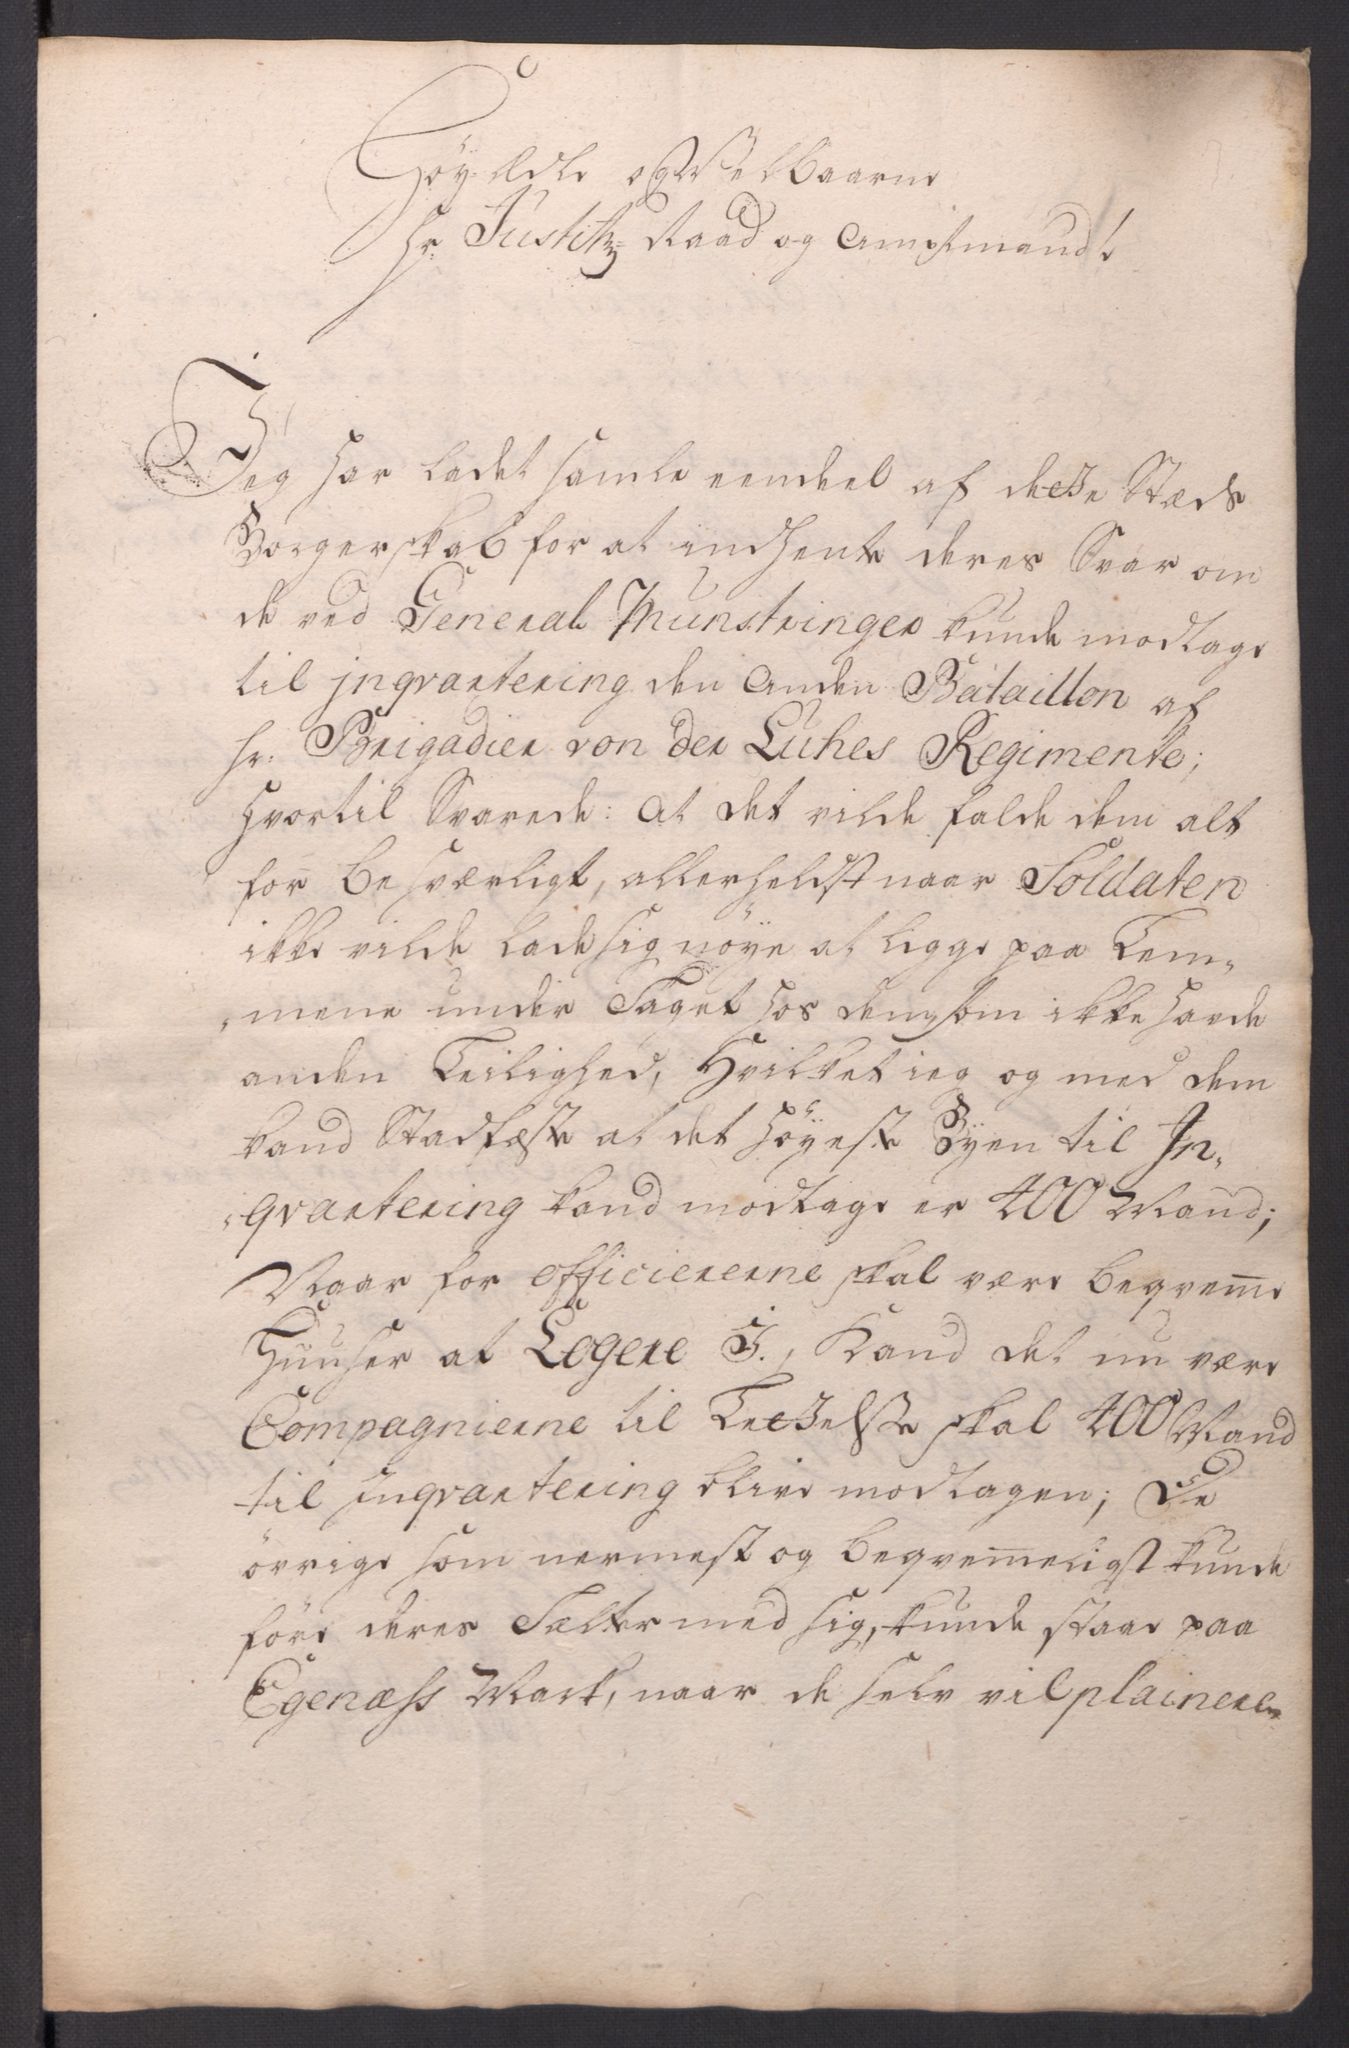 Høy-Ædle og Velbaarne
Hr. Justitz-Raad og Amptmand!
Jeg har ladet samle eendeel af dette Stæds
Borgerskab for at indhente deres Svar om
de ved General Munstringen kunde modtage
til jnqvartering den Anden Bataillon af
Hr. Brigadier von der Lühes Regimente;
Hvortil Svarede: At det vilde falde dem alt
for besværligt, allerhelst naar Soldaten
ikke vilde lade sig nöye at ligge paa Lem-
-mene under Taget hos dem som ikke havde
anden Leilighed, Hvilket ieg og med dem
kand Stadfæste at det höyeste Byen til In-
-qvartering kand modtage er 400 Mand;
Naar for Officiererne skal være beqvemme
Huuser at Logere i., Kand det nu være
Compagnierne til Lettelse skal 400 Mand
til Inqvartering blive modtagen; De
övrige som nermest og beqvemmeligst kunde
före deres Telter med sig, kunde staae paa
Egenæss Mark, naar de selv vil plainere